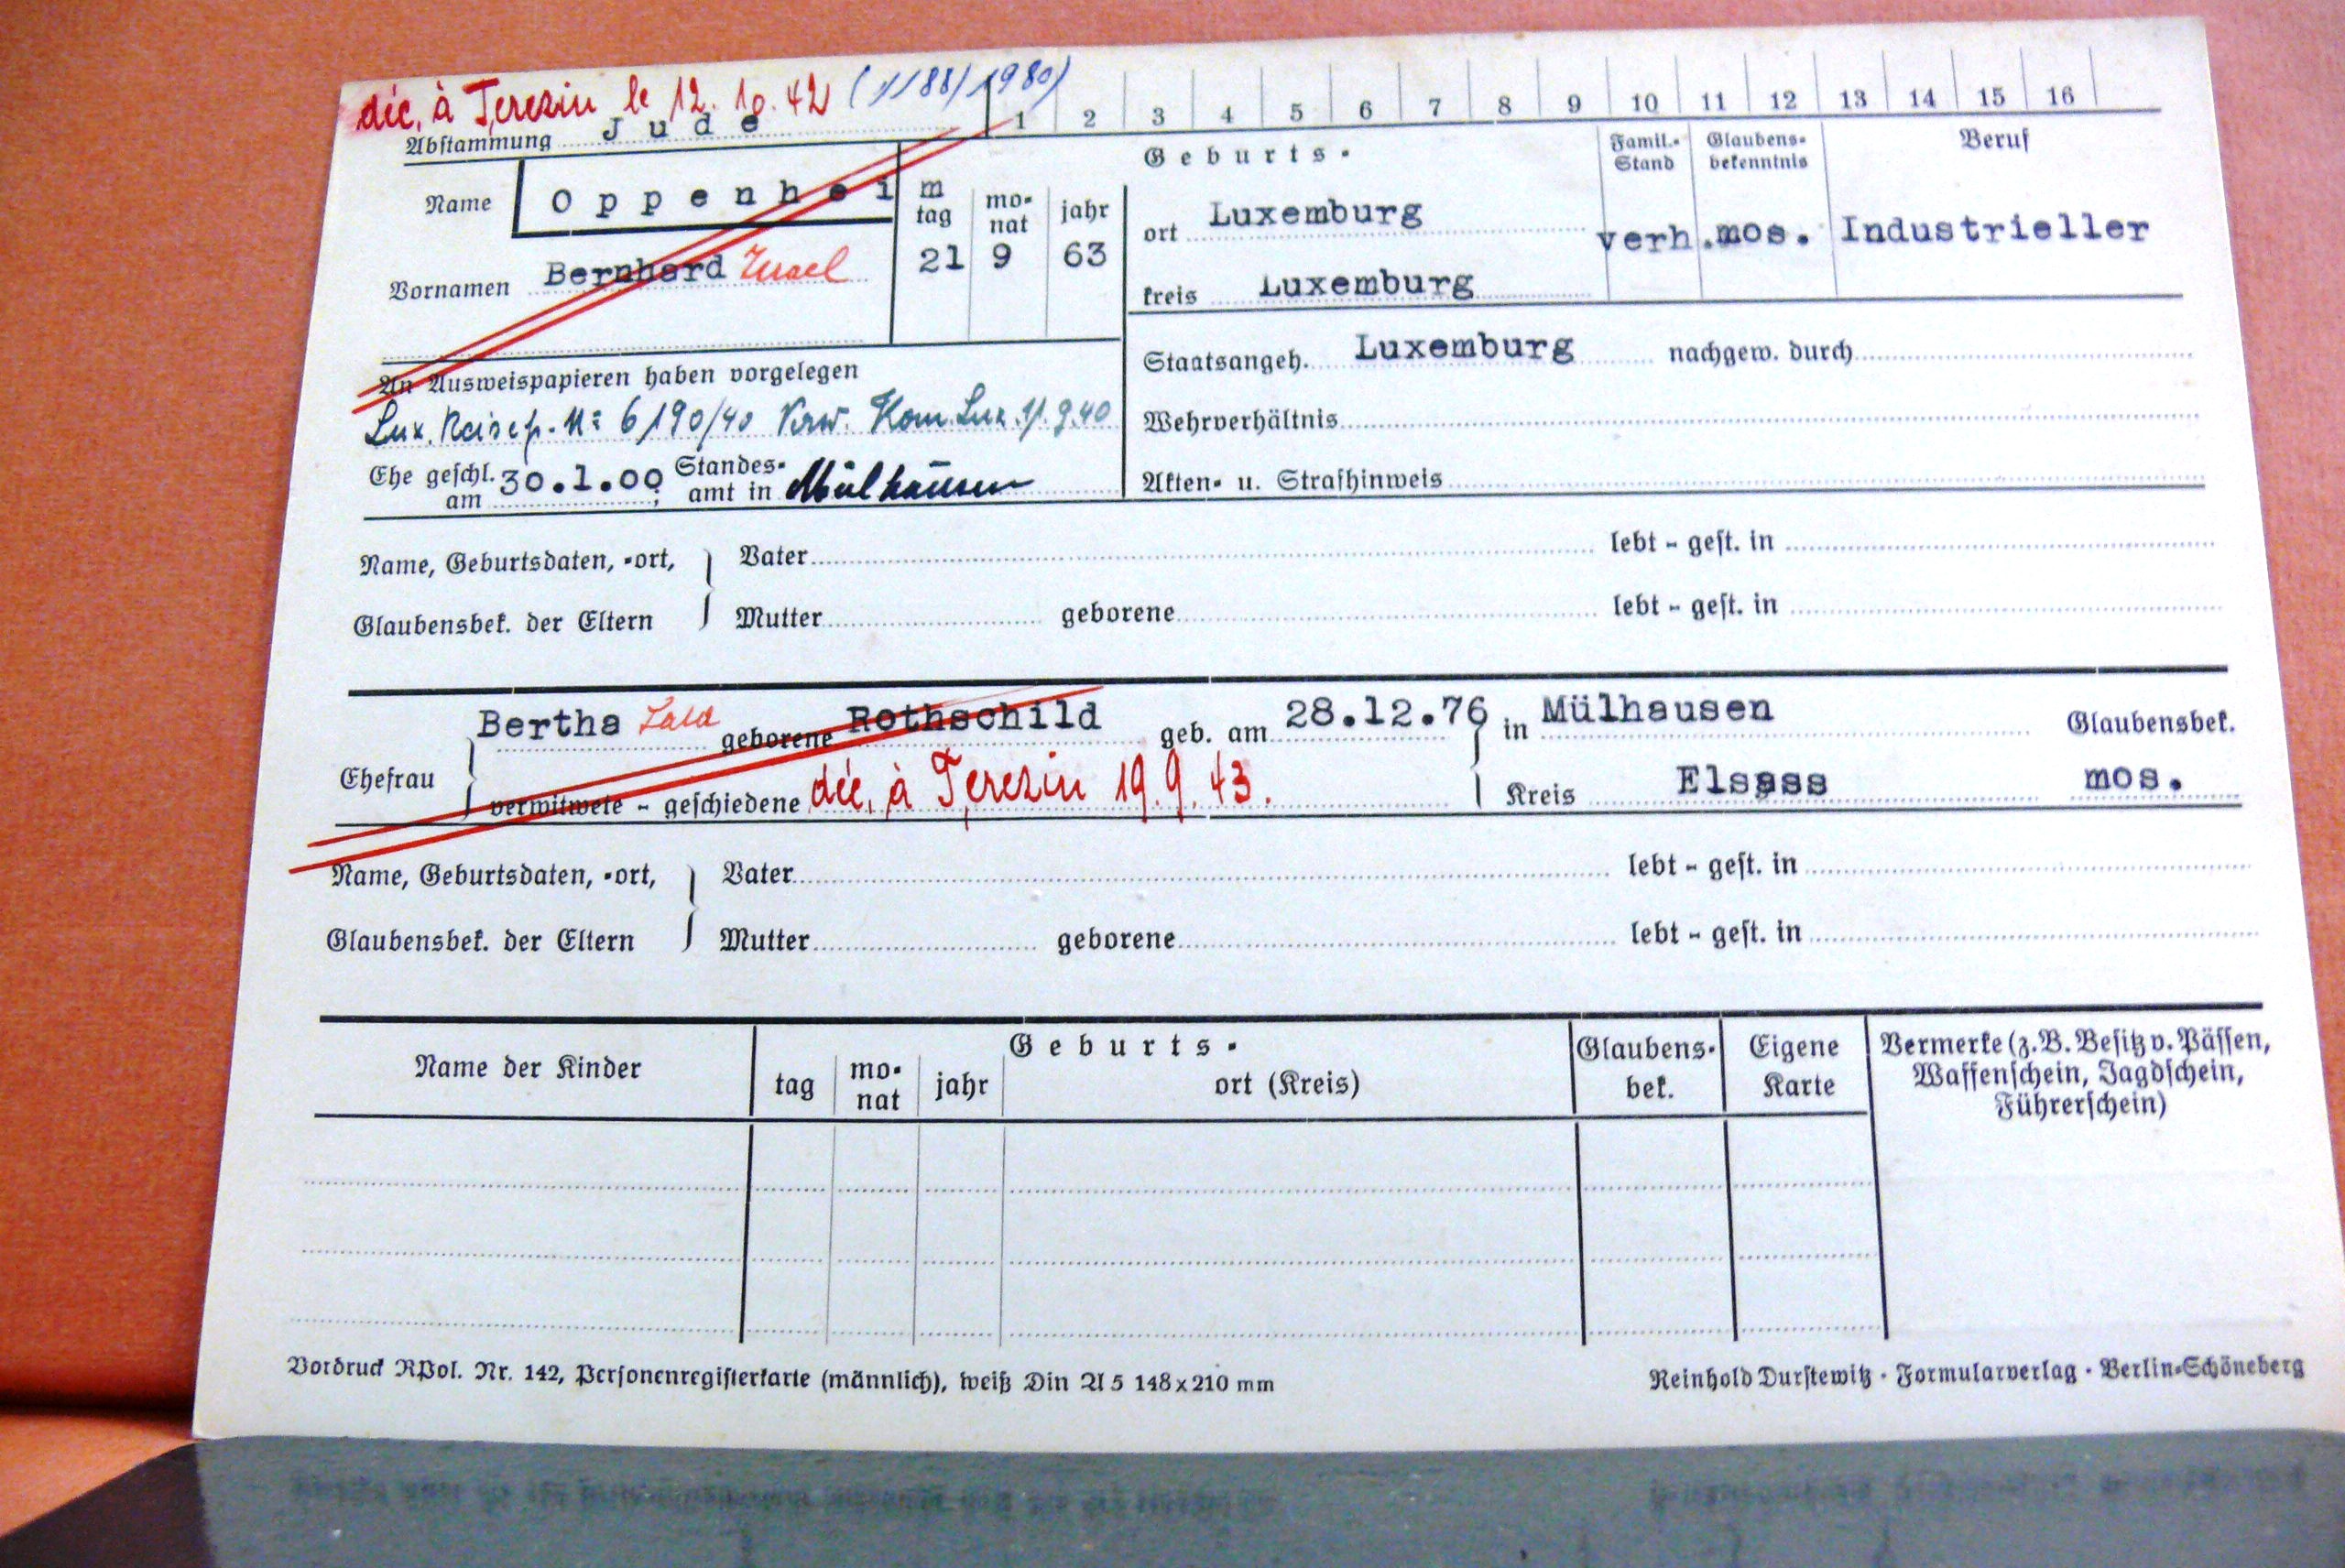 déc. à Terezin le 12.10.42 (1/88/1980)
1 2 3 4 5 6 7 8 9 10 11 12 13 14 15 16
Abstammung Jude
Name Oppenheim
Vornamen Bernhard Israel
Geburts-
tag monat jahr
21 9 63
ort Luxemburg
kreis Luxemburg
Famil.-Stand
verh.
Glaubens-bekenntnis
mos.
Beruf
Industrieller
An Ausweispapieren haben vorgelegen
Lux. Reisep. No 6190/40 Verw. Kom. Lux. 11.9.40
Ehe geschl. am 30.1.00, Standes-amt in Mülhausen
Staatsangeh. Luxemburg nachgew. durch
Wehrverhältnis
Akten- u. Strafhinweis
Name, Geburtsdaten, -ort,
Glaubensbek. der Eltern
Vater lebt - gest. in
Mutter geborene lebt - gest. in
Ehefrau
Bertha Sara geborene Rothschild geb. am 28.12.76, in Mülhausen Glaubensbek.
verwitwete - geschiedene déc. à Terezin 19.9.43. Kreis Elsass mos.
Name, Geburtsdaten, -ort,
Glaubensbek. der Eltern
Vater lebt - gest. in
Mutter geborene lebt - gest. in
Name der Kinder
Geburts-
tag monat jahr ort (Kreis)
Glaubens-bek.
Eigene Karte
Vermerke (z.B. Besitz v. Pässen,
Waffenschein, Jagdschein,
Führerschein)
Vordruck RPol. Nr. 142, Personenregisterkarte (männlich), weiß Din A 5 148x210 mm
Reinhold Durstewitz · Formularverlag · Berlin-Schöneberg